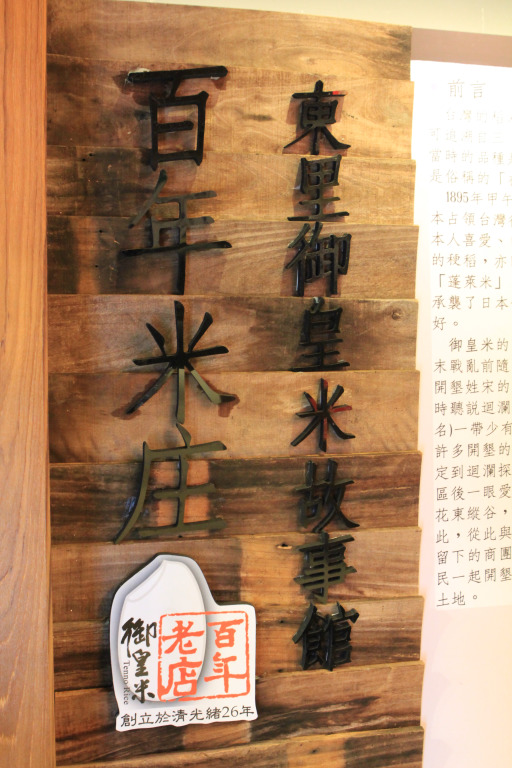 東里御皇米故事館
百年米庄
御皇米
Tenno Rice
百年
老店
創立於清光緒26年
前言
台灣的
當時的品種
是俗稱的「
1895年甲午
本占領台灣
本人喜愛、
的稉稻，亦
「蓬萊米」
承襲了日本
好。
御皇米的
末戰亂前隨
開墾姓宋的
時聽說迴瀾
名)一帶少有
許多開墾的
定到迴瀾探
區後一眼愛
花東縱谷，
此，從此與
留下的商團
民一起開墾
土地。